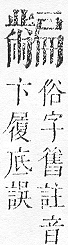 俗字舊註音
卞履底誤